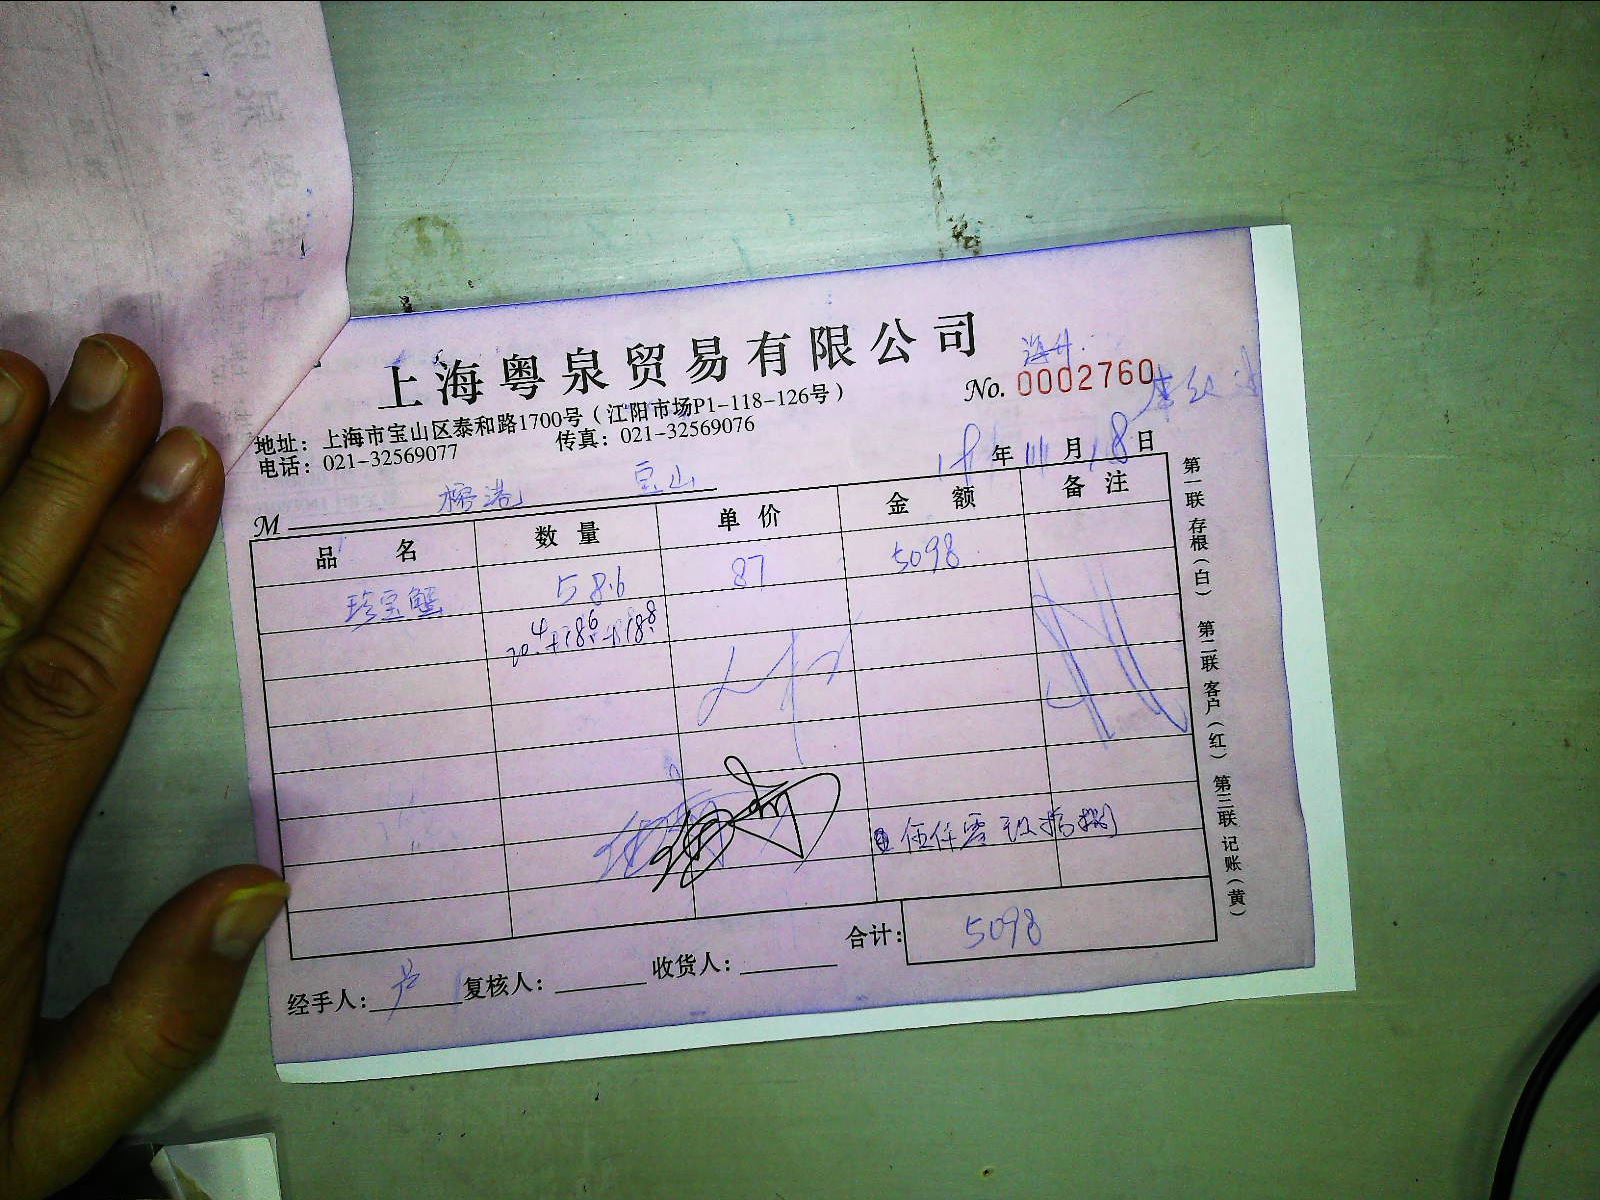 上海粤泉贸易有限公司
No. 0002760
地址：上海市宝山区泰和路1700号（江阳市场P1-118-126号）
电话：021-32569077 传真：021-32569076
18年 11月 18日
M
品名 数量 单价 金额 备注
珍宝蟹 58.6 87 5098
合计：5098
经手人：卢 复核人： 收货人：
第一联 存根（白） 第二联 客户（红） 第三联 记账（黄）